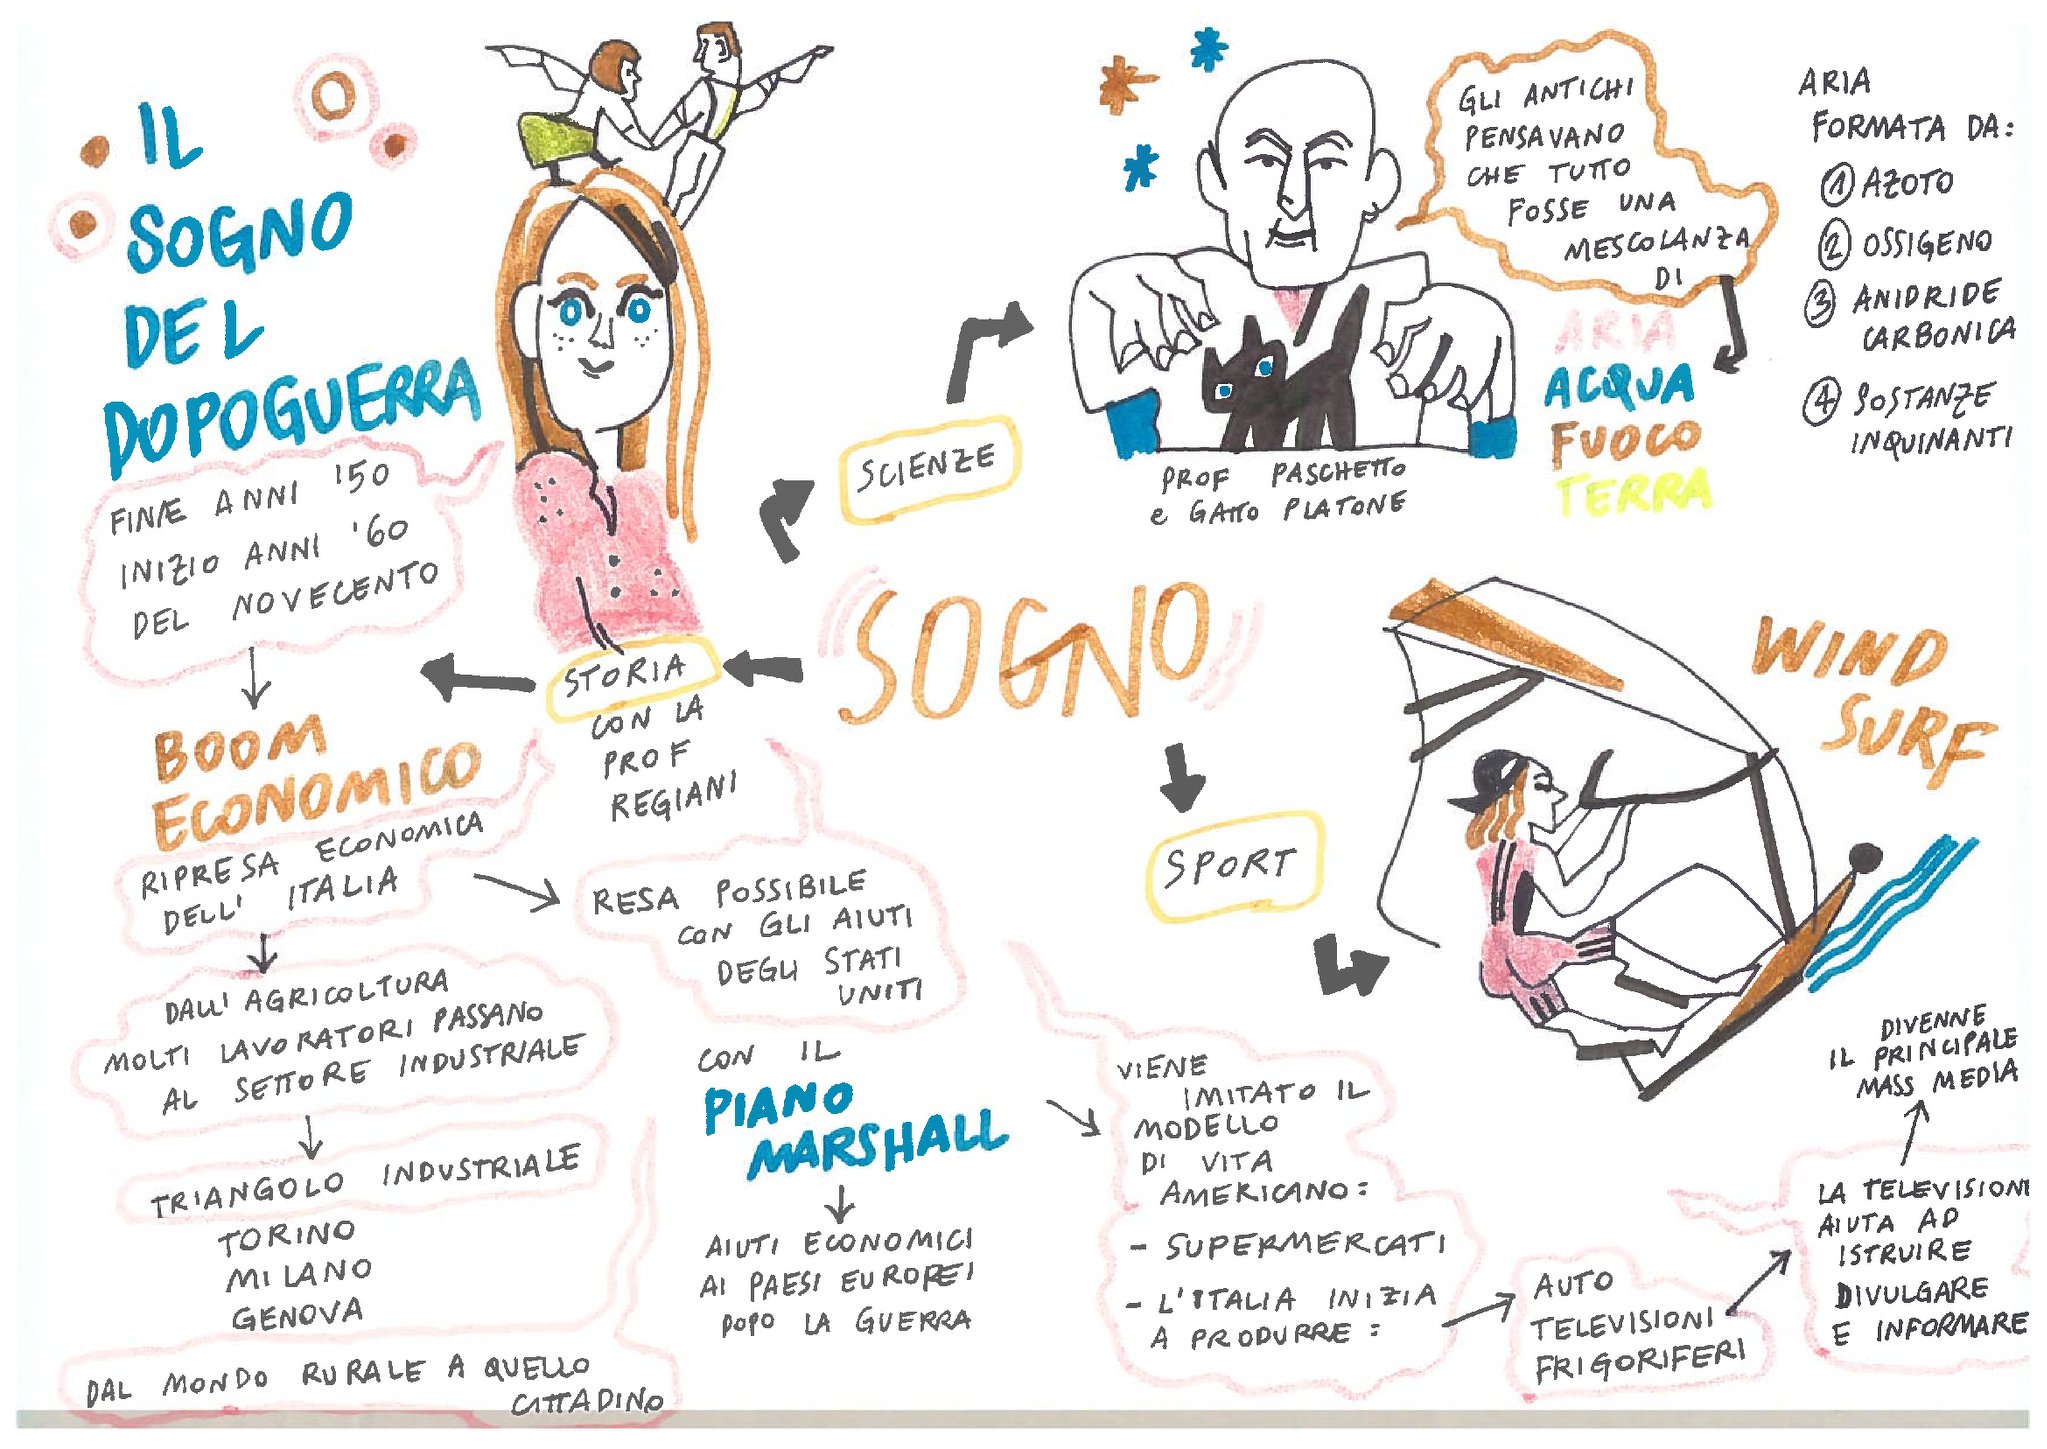 IL
SOGNO
DEL
DOPOGUERRA
FINE ANNI '50
INIZIO ANNI '60
DEL NOVECENTO
BOOM
ECONOMICO
RIPRESA ECONOMICA
DELL' ITALIA
DALL' AGRICOLTURA
MOLTI LAVORATORI PASSANO
AL SETTORE INDUSTRIALE
TRIANGOLO INDUSTRIALE
TORINO
MILANO
GENOVA
DAL MONDO RURALE A QUELLO
CITTADINO
STORIA
CON LA
PROF
REGIANI
RESA POSSIBILE
CON GLI AIUTI
DEGLI STATI
UNITI
CON IL
PIANO
MARSHALL
AIUTI ECONOMICI
AI PAESI EUROPEI
DOPO LA GUERRA
SOGNO
SCIENZE
PROF PASCHETTO
e GATTO PLATONE
GLI ANTICHI
PENSAVANO
CHE TUTTO
FOSSE UNA
MESCOLANZA
DI
ARIA
ACQUA
FUOCO
TERRA
ARIA
FORMATA DA:
1 AZOTO
2 OSSIGENO
3 ANIDRIDE
CARBONICA
4 SOSTANZE
INQUINANTI
SPORT
WIND
SURF
VIENE
IMITATO IL
MODELLO
DI VITA
AMERICANO:
- SUPERMERCATI
- L'ITALIA INIZIA
A PRODURRE:
AUTO
TELEVISIONI
FRIGORIFERI
LA TELEVISIONE
AIUTA AD
ISTRUIRE
DIVULGARE
E INFORMARE
DIVENNE
IL PRINCIPALE
MASS MEDIA